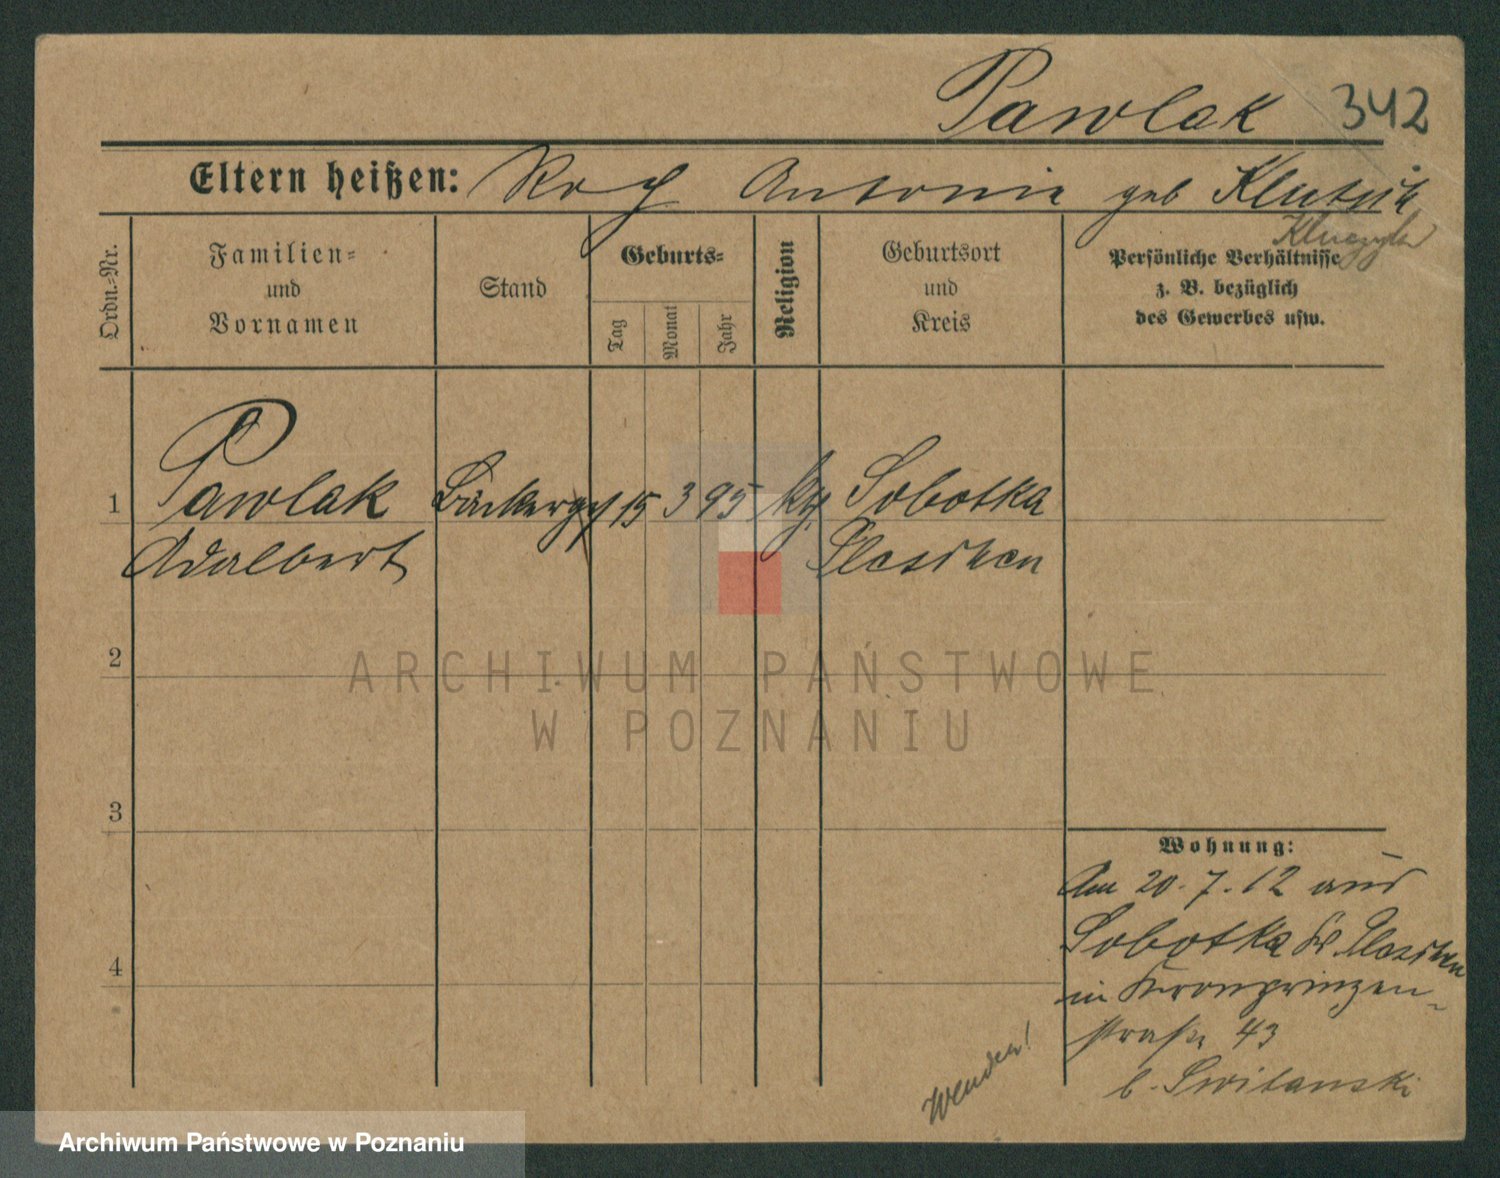 Pawlak 342
Eltern heißen: Roch Antonie geb Klutzik
Kluczyk
Ordn.-Nr.
Familien-
und
Vornamen
Stand
Geburts-
Tag
Monat
Jahr
Religion
Geburtsort
und
Kreis
Persönliche Verhältnisse
z. B. bezüglich
des Gewerbes usw.
1 Pawlak 15 3 95 Sobotka
Adalbert Pleschen
2
3
4
ARCHIWUM PAŃSTWOWE
W POZNANIU
Wohnung:
Am 20.7.12 aus
Sobotka Pleschen
in Kronprinzen-
straße 43
b.
Wenden!
Archiwum Państwowe w Poznaniu